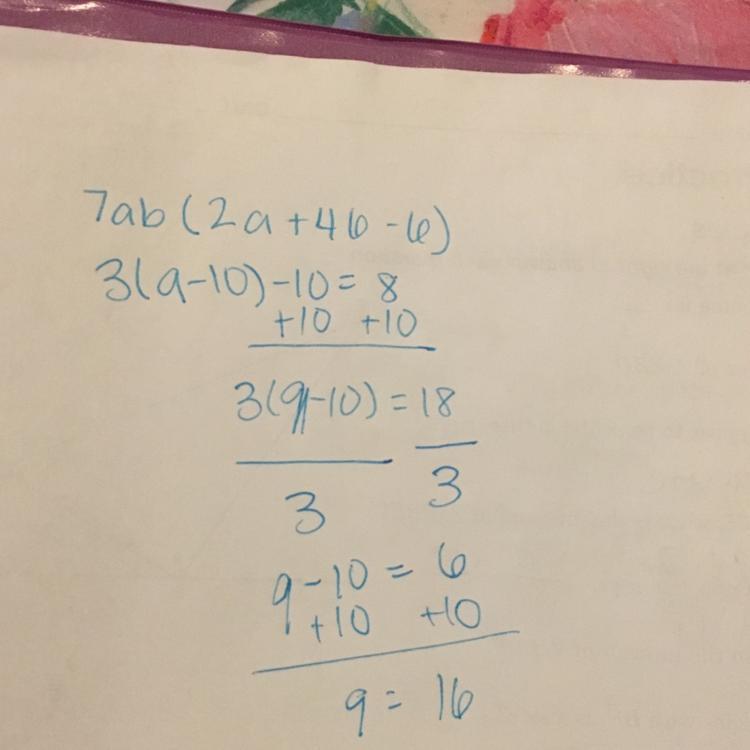 7ab(2a+4b-6)
3(q-10)-10=8
+10 +10
3(q-10)=18
3 3
q-10=6
+10 +10
q=16